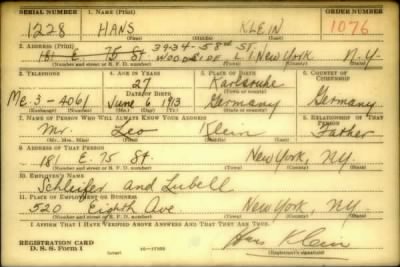 SERIAL NUMBER 1. NAME (Print) ORDER NUMBER
1228 HANS KLEIN 1076
(First) (Middle) (Last)
2. ADDRESS (Print) 39-34-58th ST
181 E. 75 St WOODSIDE L I New York N.Y
(Number and street or R. F. D. number) (Town) (County) (State)
3. TELEPHONE 4. AGE IN YEARS 5. PLACE OF BIRTH 6. COUNTRY OF CITIZENSHIP
27 Karlsruhe
DATE OF BIRTH (Town or county)
Me. 3-4061 June 6 1913 Germany Germany
(Exchange) (No.) (Mo.) (Day) (Yr.) (State or country)
7. NAME OF PERSON WHO WILL ALWAYS KNOW YOUR ADDRESS 8. RELATIONSHIP OF THAT PERSON
Mr. Leo Klein Father
(Mr., Mrs., Miss) (First) (Middle) (Last)
9. ADDRESS OF THAT PERSON
181 E. 75 St. New York, N.Y.
(Number and street or R. F. D. number) (Town) (County) (State)
10. EMPLOYER'S NAME
Schleifer and Lubell
11. PLACE OF EMPLOYMENT OR BUSINESS
520 Eighth Ave New York, N.Y.
(Number and street or R. F. D. number) (Town) (County) (State)
I AFFIRM THAT I HAVE VERIFIED ABOVE ANSWERS AND THAT THEY ARE TRUE.
REGISTRATION CARD
D. S. S. Form 1 Hans Klein
(Registrant's signature)